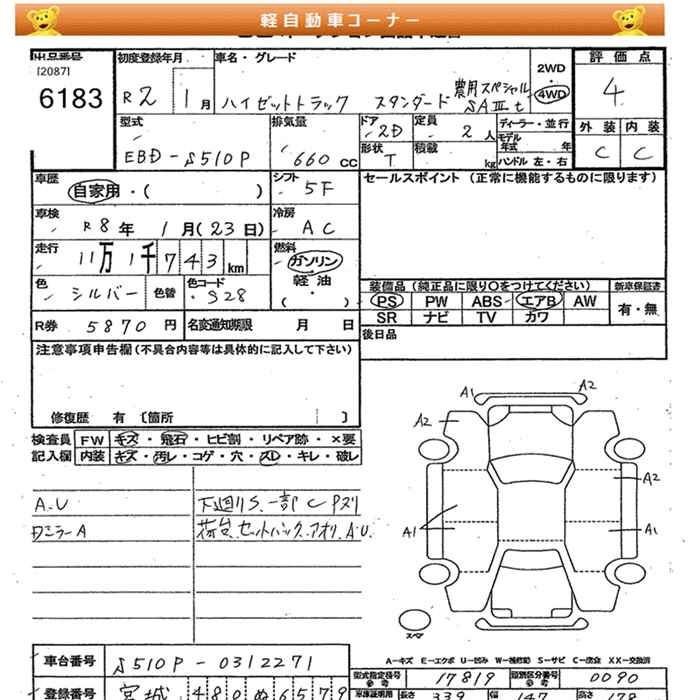 軽自動車コーナー
出品番号
[2087]
6183
初度登録年月
R2 1月
車名・グレード
ハイゼットトラック スタンダード 農用スペシャル SAⅢt
2WD
・
4WD
評価点
4
外装 内装
C C
型式
EBD-S510P
排気量
660 cc
ドア
2D
定員
2人
ディーラー・並行
形状
T
積載
kg
モデル年式 年
ハンドル 左・右
車歴
自家用・( )
シフト
5F
セールスポイント (正常に機能するものに限ります)
車検
R8年 1月(23日)
冷房
AC
走行
11万1千743km
燃料
ガソリン
軽油
( ・ )
色
シルバー
色替
色コード
S28
装備品(純正品に限り〇をつけてください)
新車保証書
PS PW ABS エアB AW
有・無
SR ナビ TV カワ
R券 5870円
名変通知期限 月 日
後日品
注意事項申告欄(不具合内容等は具体的に記入して下さい)
修復歴 有 〔箇所 〕
検査員
記入欄
FW キズ・飛石・ヒビ割・リペア跡・×要
内装 キズ・汚レ・コゲ・穴・スレ・キレ・破レ
A.U
下廻りS.一部CPスリ
ロミラーA
荷台.セットバック.アオリ.A.U.
A1 A2
A2
A2
A1 A1
スペア
A-キズ E-エクボ U-凹み W-補修跡 S-サビ C-腐食 XX-交換済
車台番号
S510P-0312271
型式指定番号
17819
類別区分番号
0090
登録番号
宮城 480ぬ6579
長さ 339 幅 147 高さ 178